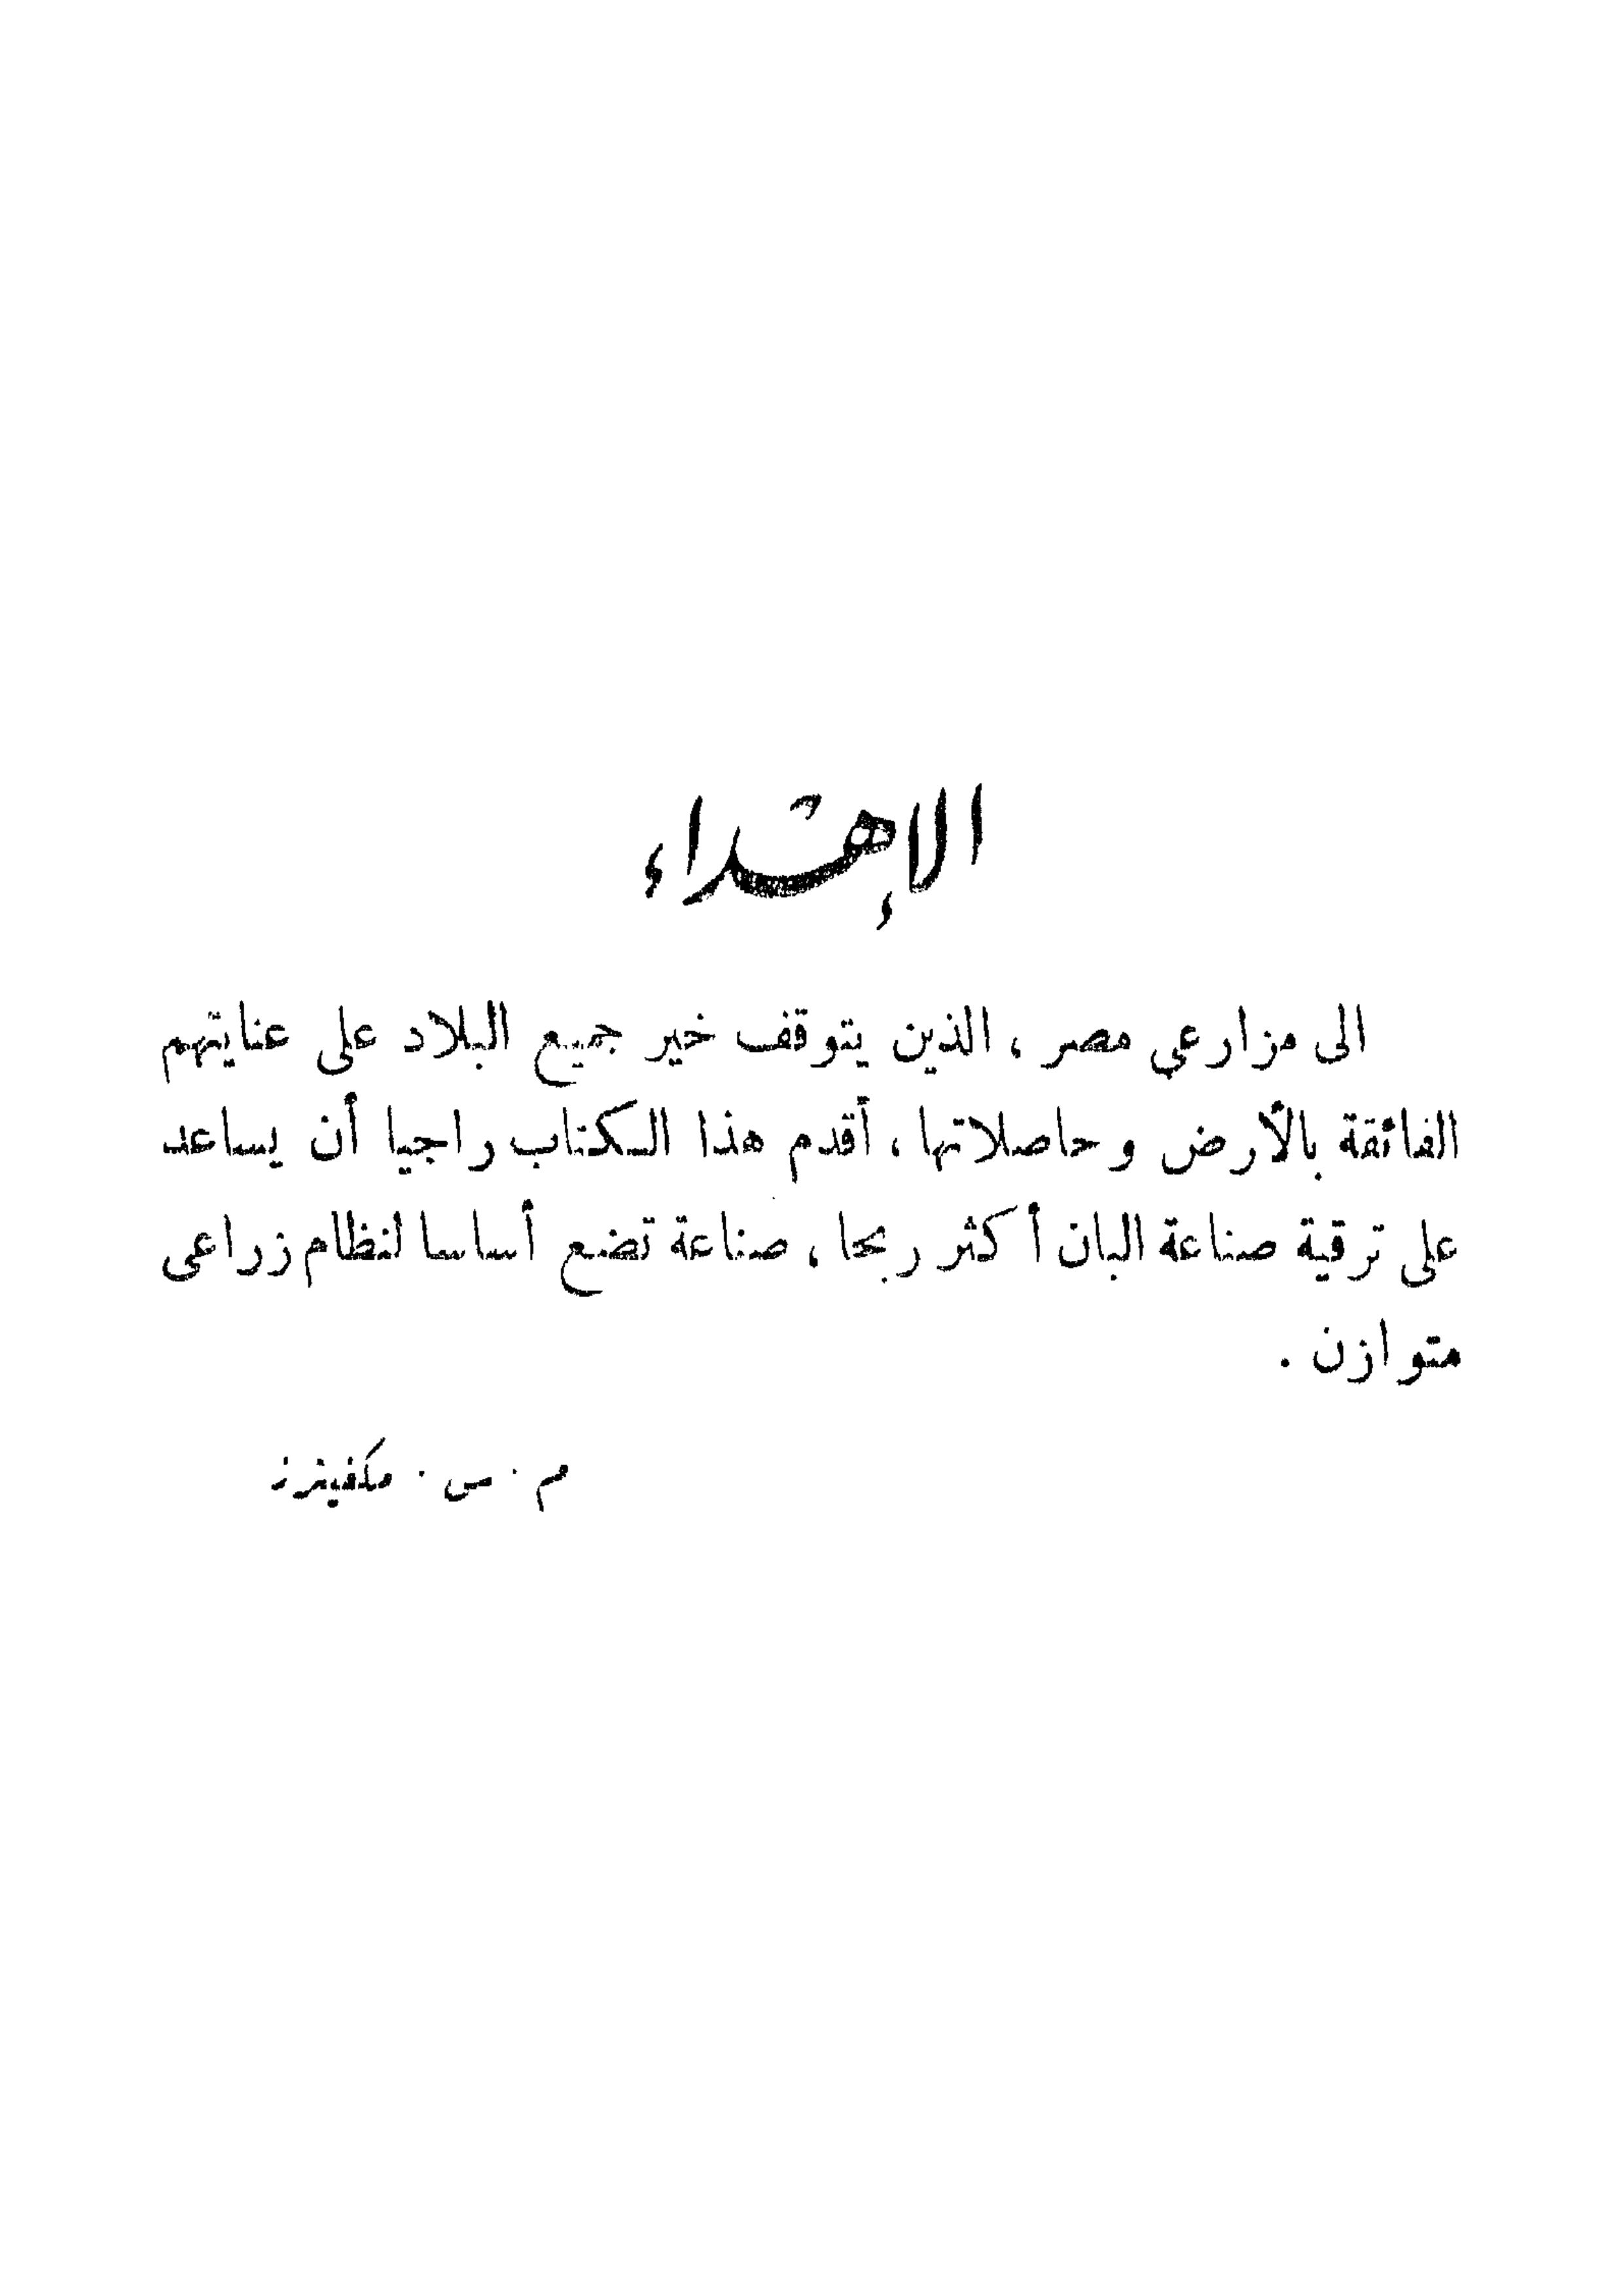 الإهداء
الى مزارعي مصر ، الذين يتوقف خير جميع البلاد على عنايتهم
الفائقة بالأرض وحاصلاتها ، أقدم هذا الكتاب راجيا أن يساعد
على ترقية صناعة البان أكثر ربحا ، صناعة تضع أساسا لنظام زراعى
متوازن .
م . س . مكفيترز